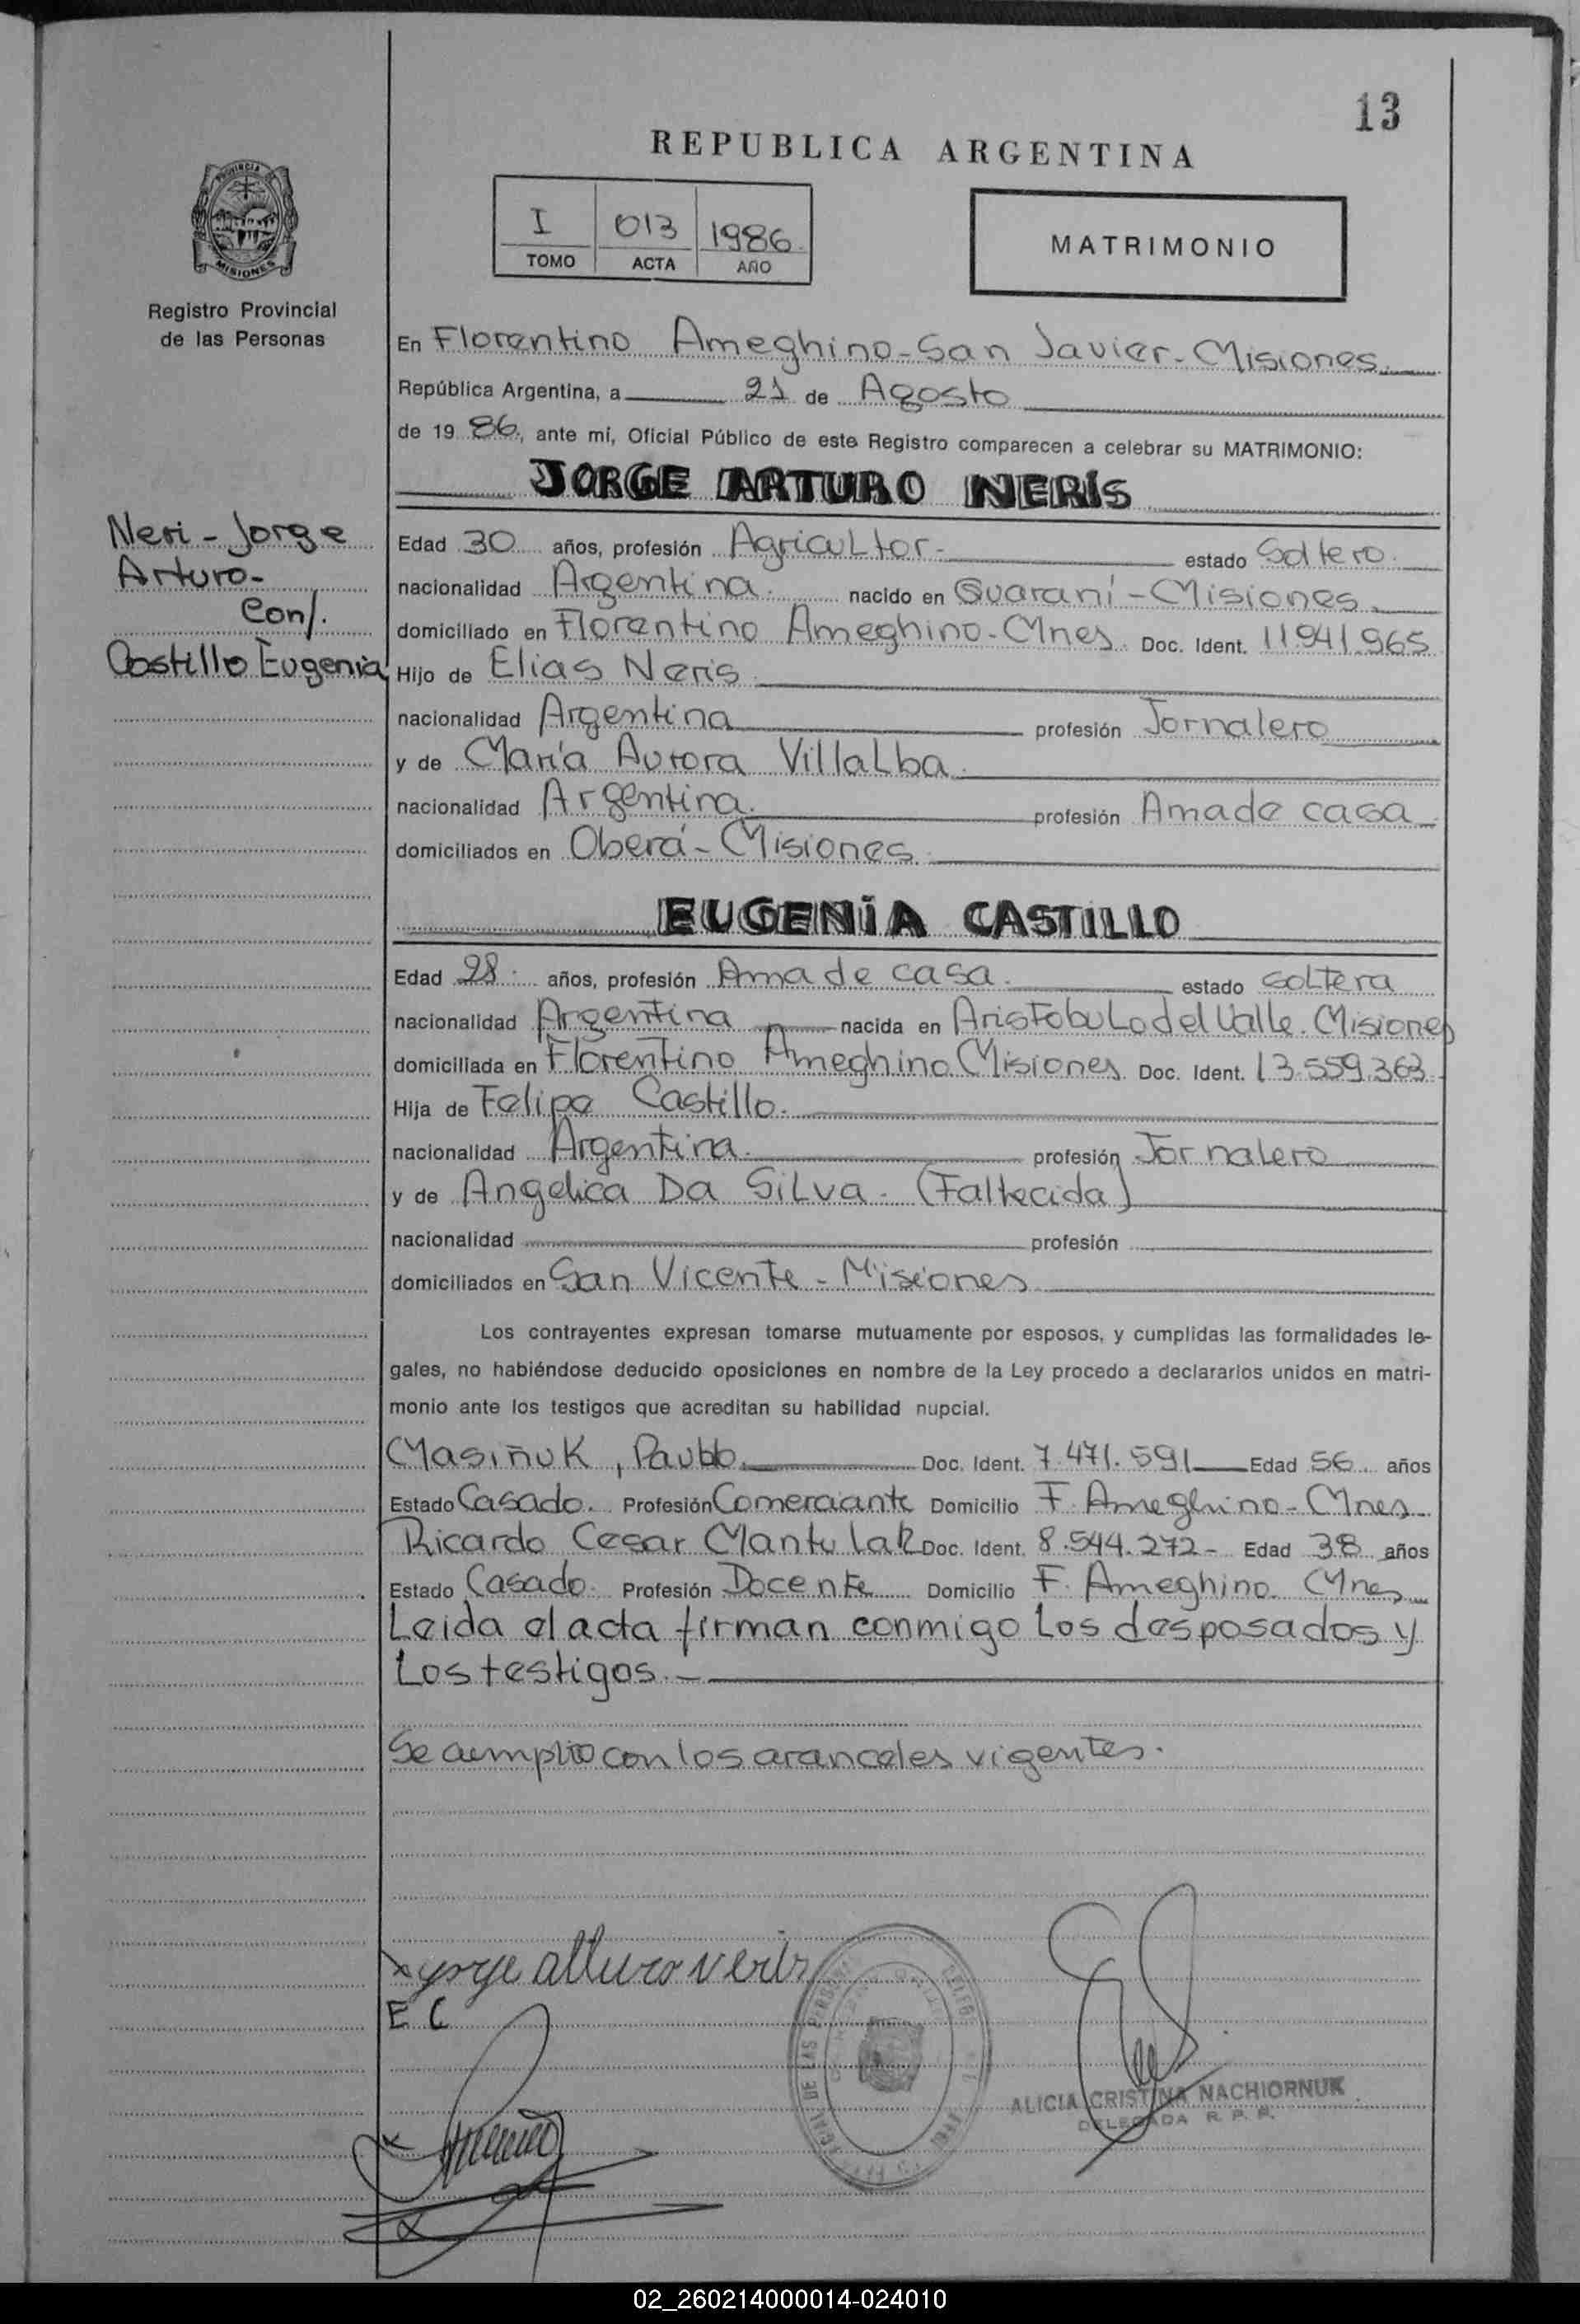 13
REPUBLICA ARGENTINA
I 013 1986
TOMO ACTA AÑO
MATRIMONIO
PROVINCIA DE
MISIONES
Registro Provincial
de las Personas
En Florentino Ameghino-San Javier-Misiones.
República Argentina, a 21 de Agosto
de 19 86, ante mí, Oficial Público de este Registro comparecen a celebrar su MATRIMONIO:
JORGE ARTURO NERIS
Neri - Jorge
Arturo-
Con/.
Castillo Eugenia
Edad 30 años, profesión Agricultor- estado Soltero.
nacionalidad Argentina. nacido en Guaraní-Misiones
domiciliado en Florentino Ameghino-Mnes. Doc. Ident. 11.941.965
Hijo de Elias Neris
nacionalidad Argentina profesión Jornalero
y de María Aurora Villalba.
nacionalidad Argentina. profesión Ama de casa
domiciliados en Oberá-Misiones.
EUGENIA CASTILLO
Edad 28. años, profesión Ama de casa. estado Soltera
nacionalidad Argentina nacida en Aristobulo del Valle. Misiones
domiciliada en Florentino Ameghino Misiones Doc. Ident. 13.559.363
Hija de Felipe Castillo.
nacionalidad Argentina. profesión Jornalero
y de Angelica Da Silva. (Fallecida)
nacionalidad profesión
domiciliados en San Vicente - Misiones
Los contrayentes expresan tomarse mutuamente por esposos, y cumplidas las formalidades le-
gales, no habiéndose deducido oposiciones en nombre de la Ley procedo a declararlos unidos en matri-
monio ante los testigos que acreditan su habilidad nupcial.
Masiñuk, Paublo. Doc. Ident. 7.471.591 Edad 56 años
Estado Casado. Profesión Comerciante Domicilio F. Ameghino-Mnes.
Ricardo Cesar Mantulak Doc. Ident. 8.544.272- Edad 38 años
Estado Casado. Profesión Docente Domicilio F. Ameghino. Mnes
Leida el acta firman conmigo los desposados y
los testigos.-
Se cumplio con los aranceles vigentes.
E C
ALICIA CRISTINA NACHIORNUK
DELEGADA R. P. P.
02_260214000014-024010